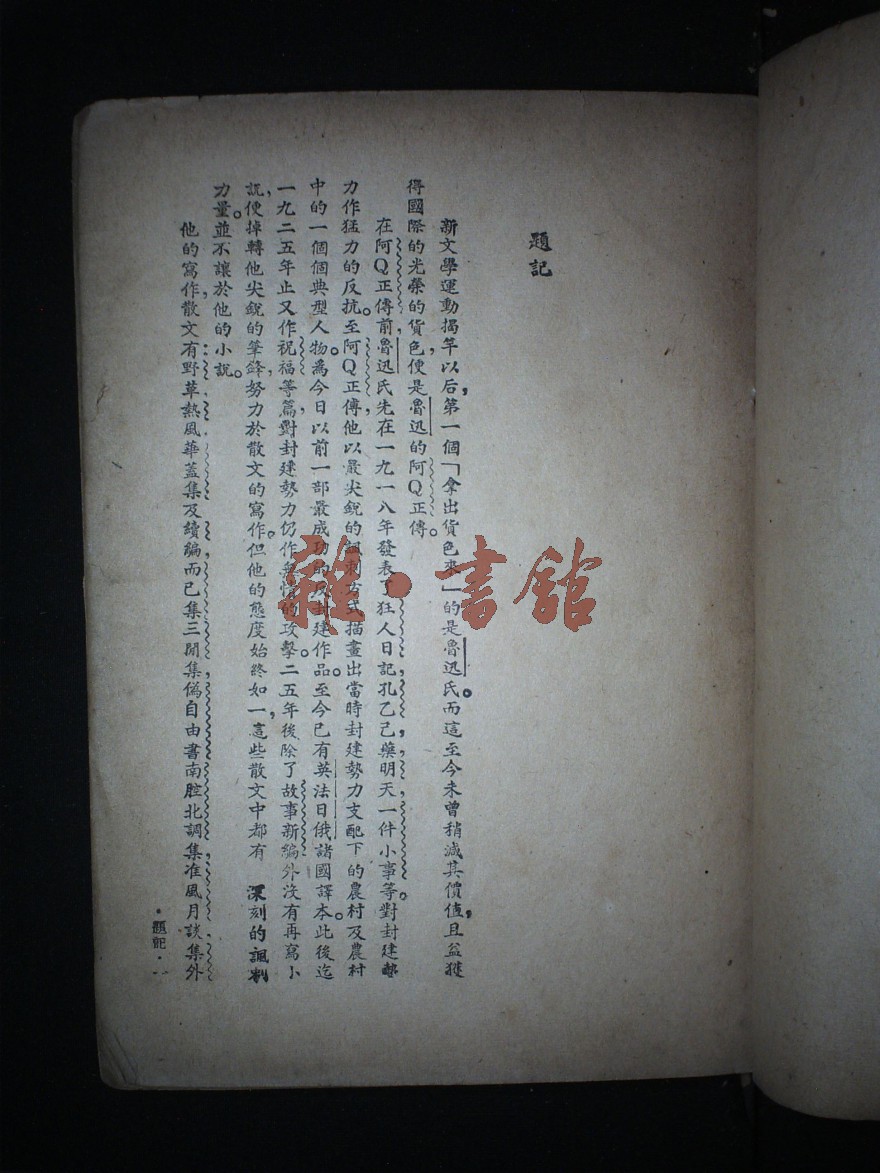 題記
新文學運動揭竿以后，第一個「拿出貨色來」的是魯迅氏。而這至今未曾稍減其價值，且益獲
得國際的光榮的貨色，便是魯迅的阿Q正傳。
在阿Q正傳前，魯迅氏先在一九一八年發表了狂人日記，孔乙己，藥，明天，一件小事等。對封建勢
力作猛力的反抗。至阿Q正傳，他以最尖銳的諷刺方式描畫出當時封建勢力支配下的農村及農村
中的一個個典型人物。為今日以前一部最成功的反封建作品。至今已有英法日俄諸國譯本。此後迄
一九二五年止又作祝福等篇，對封建勢力仍作無情的攻擊。二五年後除了故事新編外沒有再寫小
說，便掉轉他尖銳的筆鋒，努力於散文的寫作。但他的態度始終如一，這些散文中都有 深刻的諷刺
力量。並不讓於他的小說。
他的寫作，散文有野草，熱風，華蓋集及續編，而已集，三閒集，偽自由書，南腔北調集，准風月談，集外
·題記·一
雜·書館